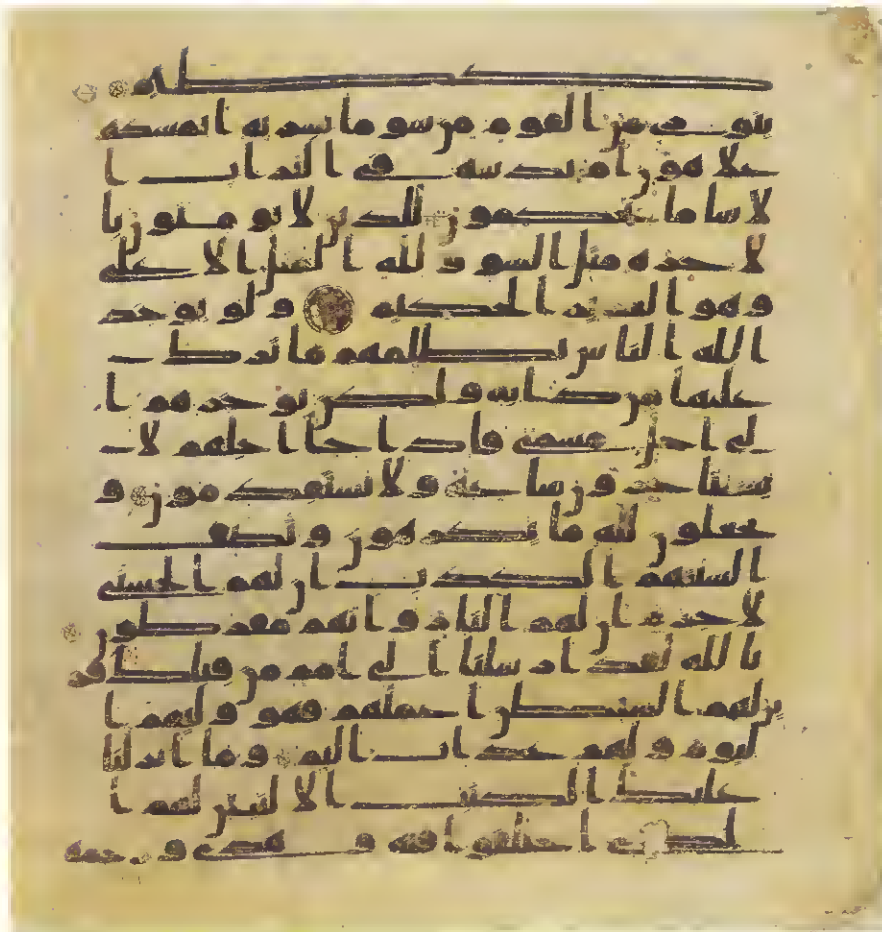 كظيم
يتورى من القوم من سو ما بشر به ايمسكه
على هون ام يدسه في التراب ا
لا سا ما يحكمون للذين لا يومنون با
لاخره مثل السو ولله المثل الاعلى
وهو العزيز الحكيم ولو يوخذ
الله الناس بظلمهم ما ترك
عليها من دابه ولكن يوخرهم ا
لى اجل مسمى فاذا جا اجلهم لا
يستاخرون ساعة ولا يستقدمون و
يجعلون لله ما يكرهون وتصف
السنتهم الكذب ان لهم الحسنى
لا جرم ان لهم النار وانهم مفرطون
تالله لقد ارسلنا الى امم من قبلك فز
ين لهم الشيطن اعملهم فهو وليهم ا
ليوم ولهم عذاب اليم وما انزلنا
عليك الكتب الا لتبين لهم ا
لذى اختلفوا فيه وهدى ورحمه